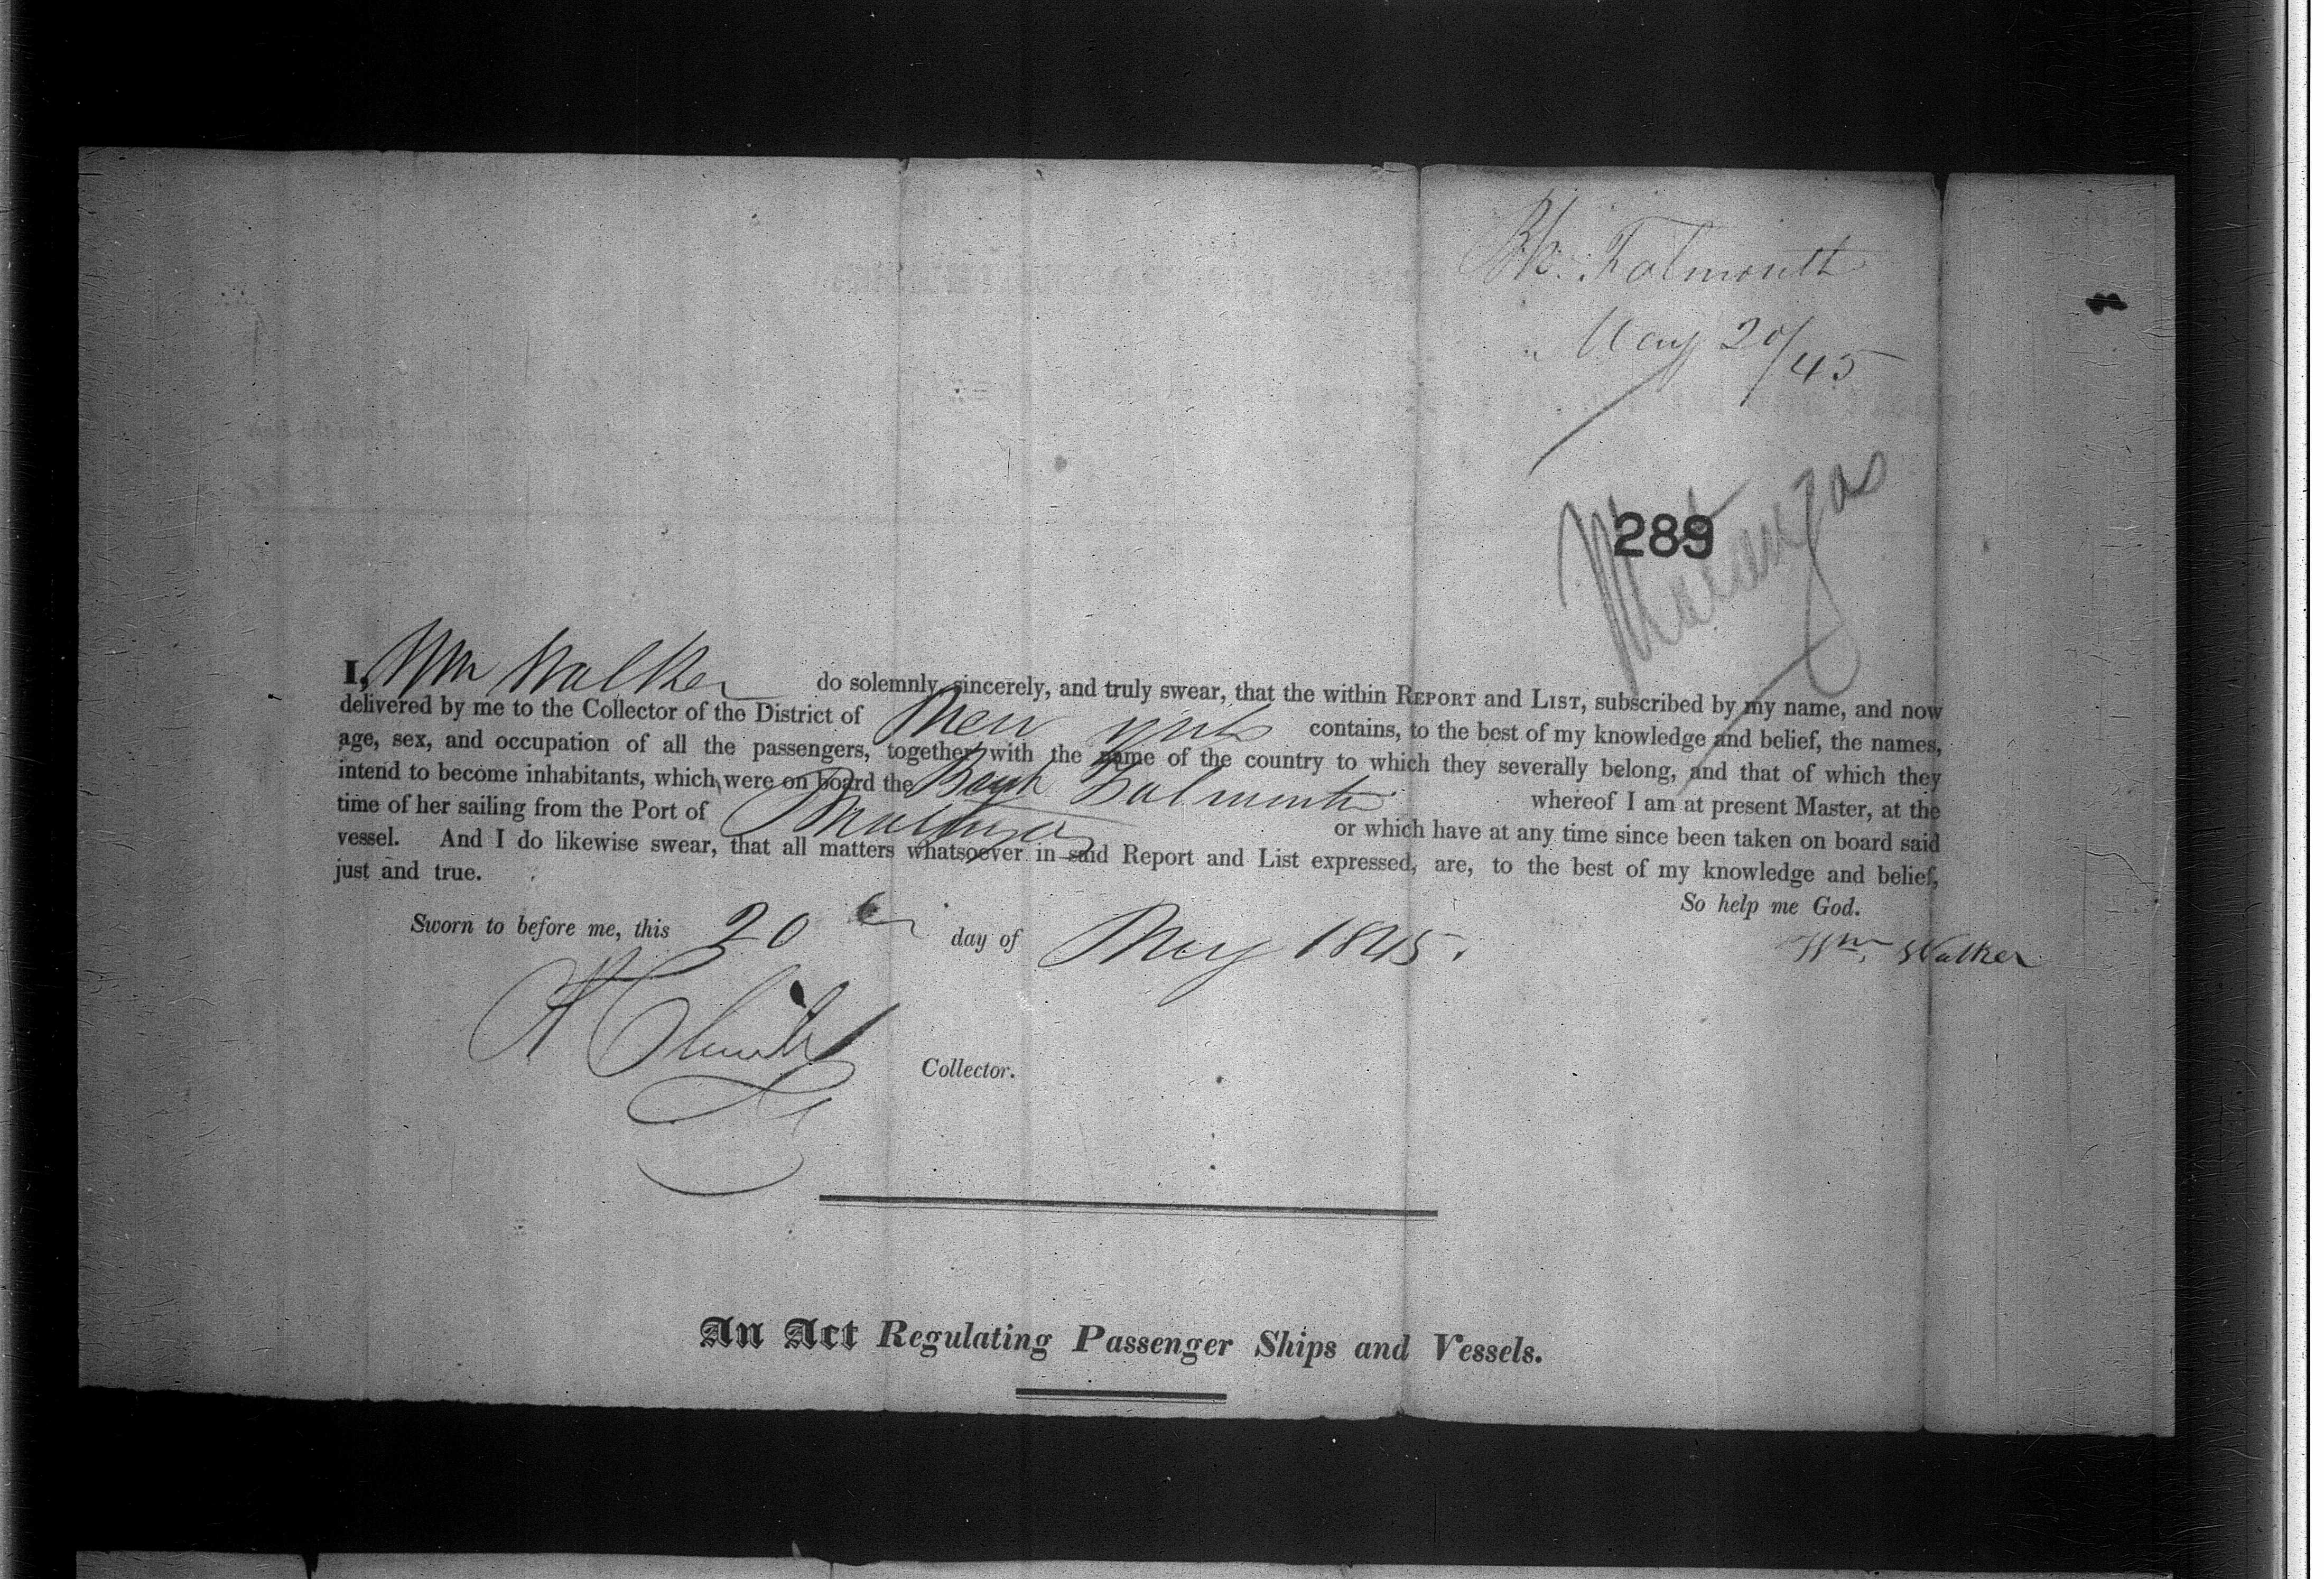 Bk. Falmouth
May 20/45
289
Matanzas
I, Wm Walker do solemnly, sincerely, and truly swear, that the within REPORT and LIST, subscribed by my name, and now
delivered by me to the Collector of the District of New York contains, to the best of my knowledge and belief, the names,
age, sex, and occupation of all the passengers, together with the name of the country to which they severally belong, and that of which they
intend to become inhabitants, which were on board the Bark Falmouth whereof I am at present Master, at the
time of her sailing from the Port of Matanzas or which have at any time since been taken on board said
vessel. And I do likewise swear, that all matters whatsoever in said Report and List expressed, are, to the best of my knowledge and belief,
just and true.
So help me God.
Sworn to before me, this 20 day of May 1845.
Wm. Walker
Collector.
An Act Regulating Passenger Ships and Vessels.